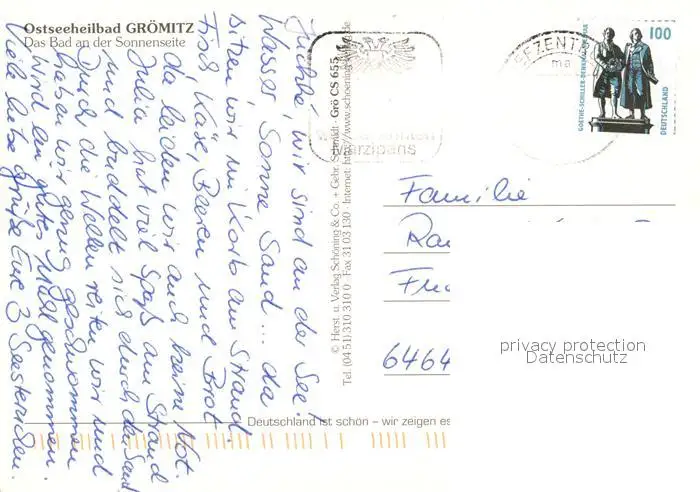 Ostseeheilbad GRÖMITZ
Das Bad an der Sonnenseite
Juchhe, wir sind an der See!
Wasser Sonne Sand... da
sitzen wir im Korb am Strand.
Fisch Käse, Beeren und Brot
da leiden wir auch keine Not.
Julia hat viel Spaß am Strand
und buddelt sich durch den Sand
Durch die Wellen reiten wir und
haben wir genug geschwommen
wird ein gutes genommen.
Viele liebe Grüße Eure 3
© Herst. u. Verlag Schöning & Co. + Gebr. Schmidt · Grö CS 655
Tel. (04 51) 310 310 0 · Fax 31 03 130 · Internet: http://www.schoening-verlag.de
Marzipans
100
GOETHE-SCHILLER-DENKMAL WEIMAR
DEUTSCHLAND
Familie
6464
privacy protection
Datenschutz
Deutschland ist schön – wir zeigen es